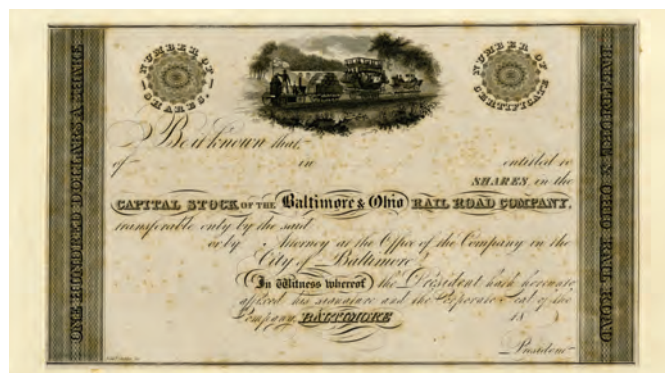 NUMBER OF SHARES.
NUMBER OF CERTIFICATE
ONE HUNDRED DOLLARS A SHARE
BALTIMORE & OHIO RAIL ROAD
Be it known that,
of in entitled to
SHARES, in the
CAPITAL STOCK OF THE Baltimore & Ohio RAIL ROAD COMPANY,
transferable only by the said
or by Attorney at the Office of the Company in the
City of Baltimore
In Witness whereof the President hath hereunto
affixed his signature and the Corporate Seal of the
Company, BALTIMORE 18
President